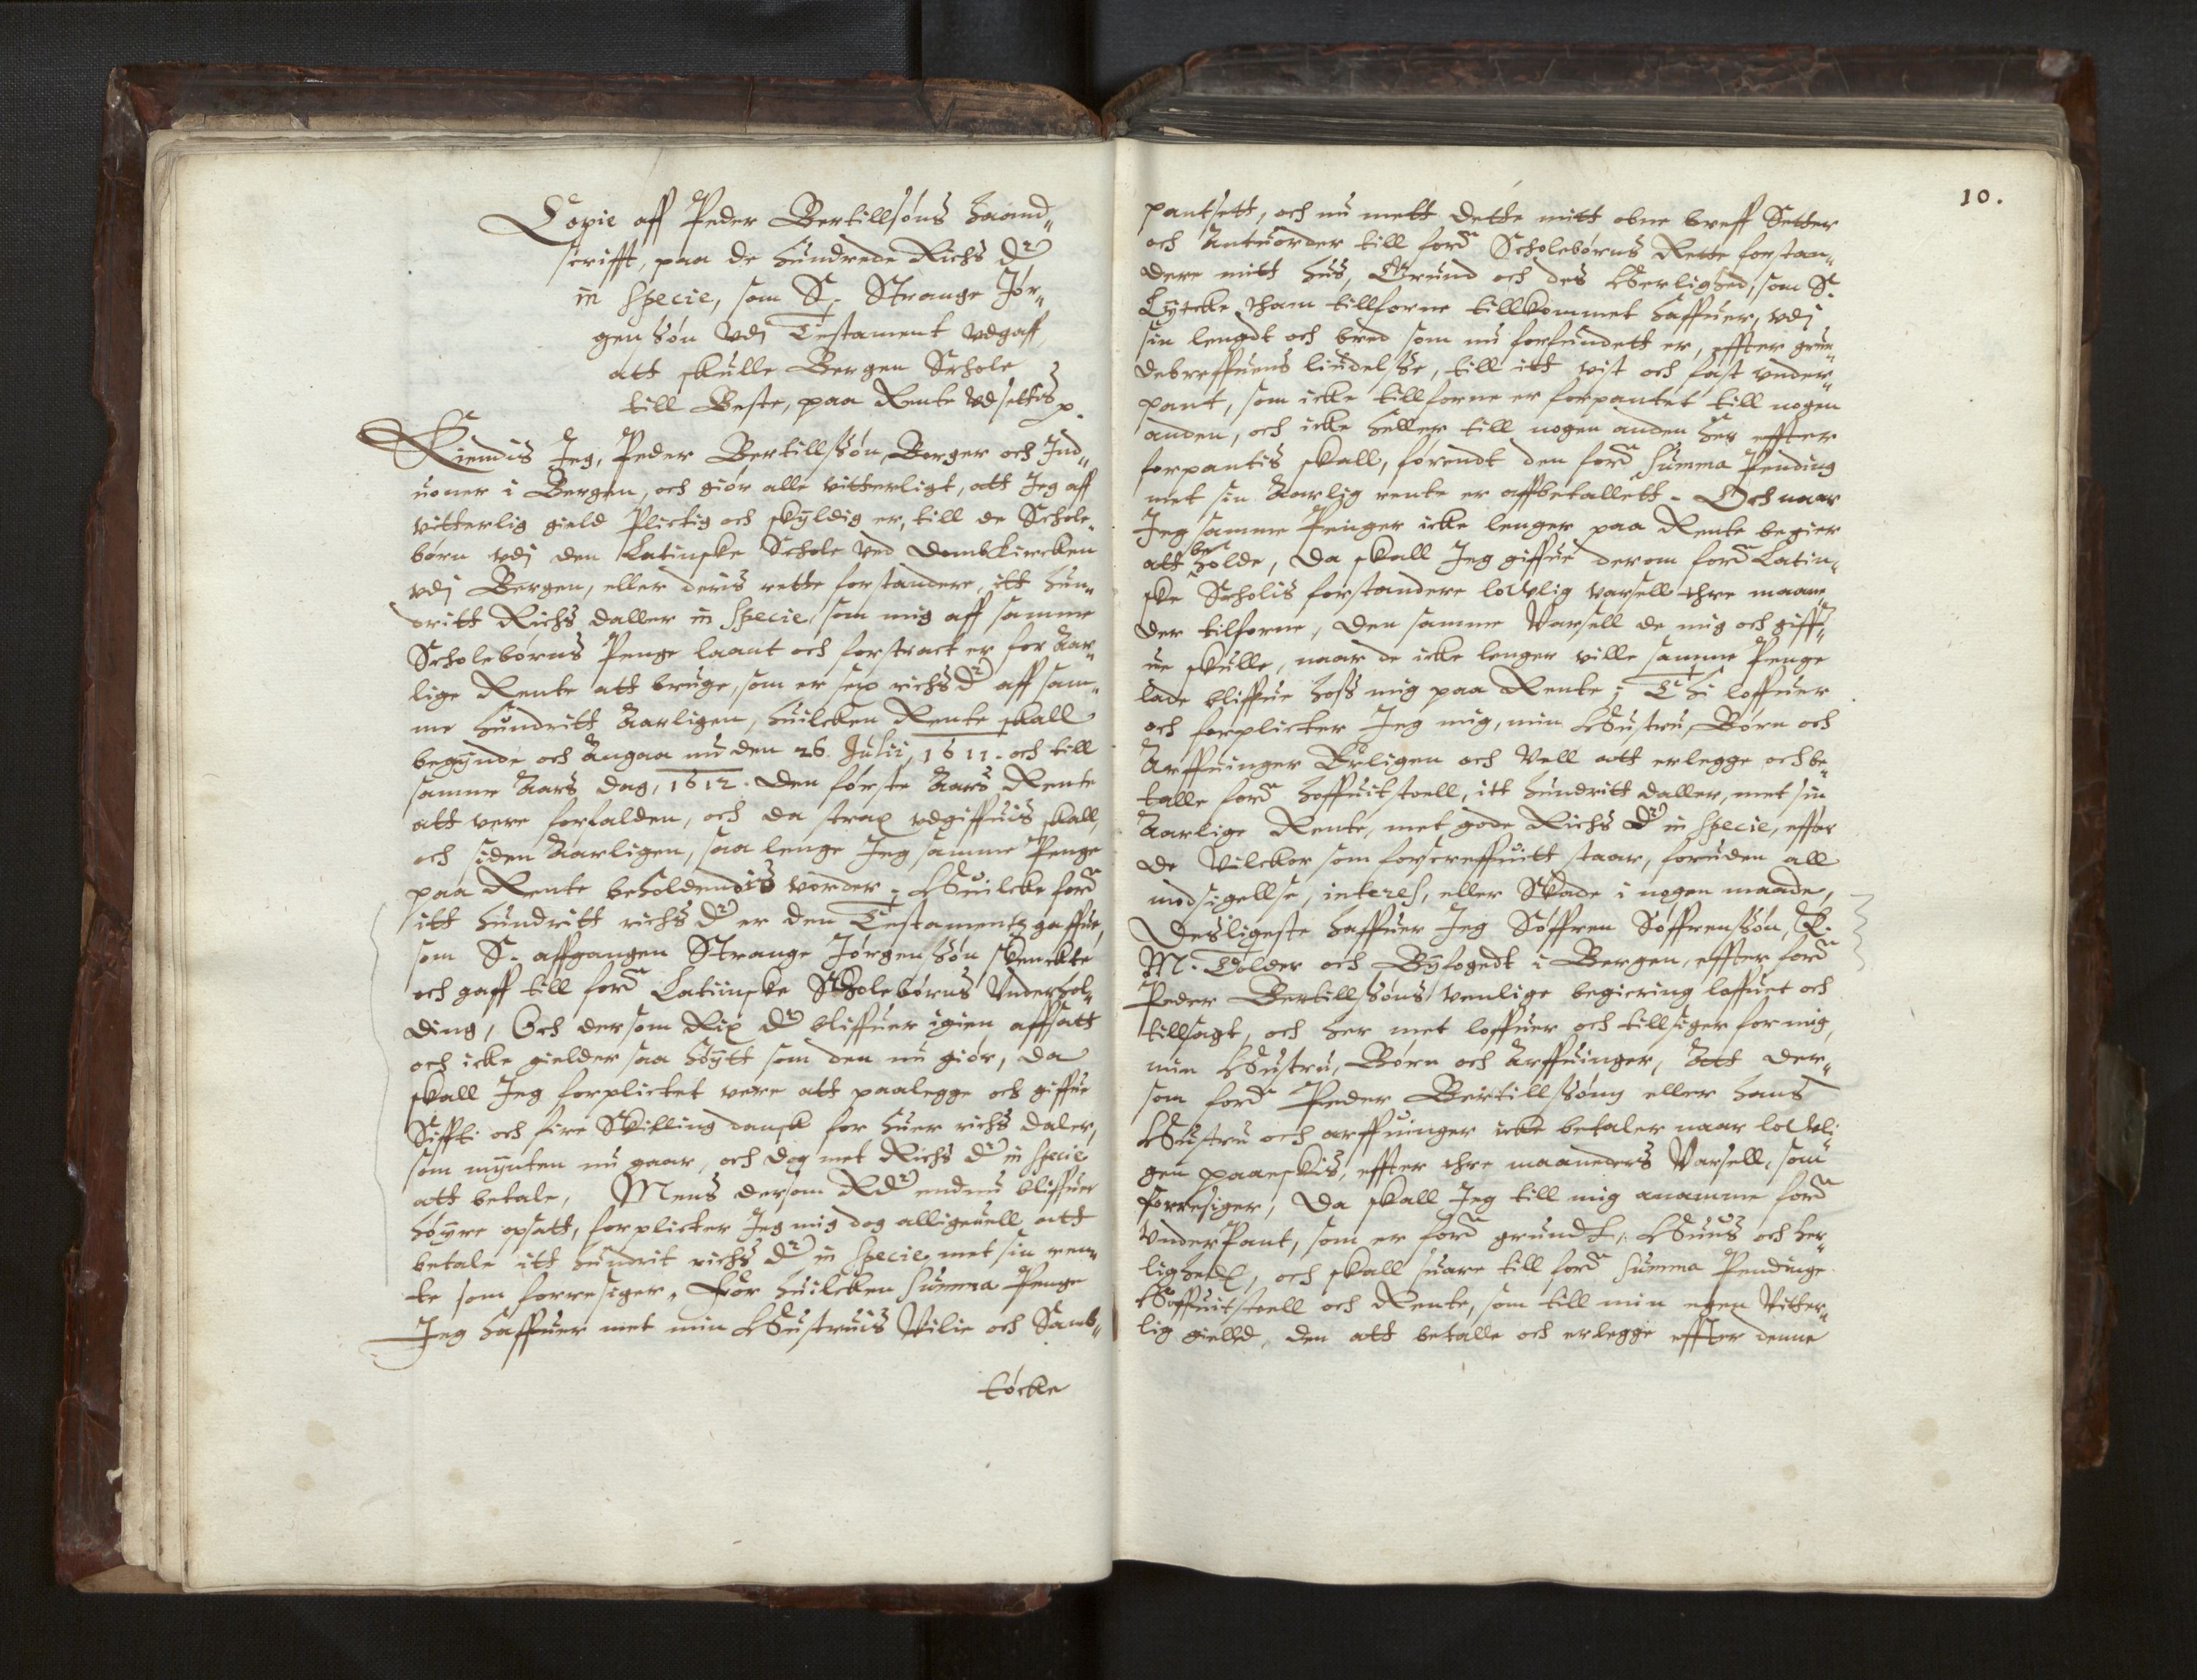 Copie aff Peder Bertillsøns Haand„
scrifft, paa de Hundrede Richs Dr
in specie, som S. Strange Jør„
gensøn vdj Testament vdgaff,
att skulle Bergen Schole
till Beste, paa Rente vdsettis
Kiendis Jeg, Peder Bertillssøn, Borger och Ind„
uoner i Bergen, och giør alle vitterligt, att Jeg aff
vitterlig gield Plictig och skyldig er, till de Schole„
børn vdj den Latinske Schole ved Dombkircken
vdj Bergen, eller deris rette forstandere, itt Hun„
dritt Richs daller in specie, som mig aff samme
Scholebørns Penge laant och forstract er for Aar„
lige Rente att bruge, som er sex richs Dr aff sam„
me Hundritt Aarligen, huilcken Rente skall
begynde och Angaa nu den 26. Julii, 1611. och till
samme Aars dag, 1612. Den første Aars Rente
att vere forfalden, och da strax vdgiffuis skall,
och siden Aarligen, saa lenge Jeg samme Penge
paa Rente beholdendis vorder; Huilcke ford
itt Hundritt richs Dr er den Testamentz gaffue,
som S. affgangen Strange Jørgensøn skenckte
och gaff till ford Latiinske Scholebørns Vnderhol„
ding, Och dersom Rix Dr bliffuer igien affsatt
och icke gielder saa høytt som den nu giør, da
skall Jeg forplictet vere att paalegge och giffue
Siffti och fire Skilling dansk for huer richs daler,
som mynten nu gaar, och dog met Richs Dr in specie
att betale, Mens dersom RDr endnu bliffuer
høyre opsatt, forplicter Jeg mig dog alligeuell att
betale itt hundrit richs Dr in specie met sin ren„
te som forresiger. For huilcken summa Penge
Jeg haffuer met min Hustruis Vilie och Samb„
tøcke
10.
pantsett, och nu mett dette mitt obne breff Setter
och Antuorder till ford Scholebørns Rette forstan„
dere mitt hus, Grund och des Herlighed, som S.
Lytcke tham tillforne tillkommet haffuer, vdj
sin lengdt och bred som nu forfundett er, effter grun„
debreffuens liudelsse, till itt vist och fast vnder„
pant, som icke tillforne er forpantet till nogen
anden, och icke heller till nogen anden her effter
forpantis skall, førendt den ford summa Pending
met sin Aarlig rente er affbetallett. Och naar
Jeg samme Penger icke lenger paa Rente begier
att beholde, da skall Jeg giffue derom ford Latin„
ske Scholis forstandere lowlig varsell thre maane„
der tilforne, den samme Varsell de mig och giff„
ue skulle, naar de icke lenger ville samme Penge
lade bliffue hoss mig paa Rente; Thi loffuer
och forplicter Jeg mig, min Hustru, Børn och
Arffuinger Erligen och Vell att erlegge och be„
talle ford hoffuitstoell, itt hundritt daller, met sin
Aarlige Rente, met gode Richs Dr in specie, effter
de Vilckor som forscreffuitt staar, foruden all
modsigellse, interes, eller Skade i nogen maade,
Desligeste haffuer Jeg Søffren Søffrenssøn, K.
M. Tolder och Byfogedt i Bergen, effter ford
Peder Bertillssøns venlige begiering loffuet och
tillsagt, och her met loffuer och tillsiger for mig,
min Hustru, Børn och Arffuinger, Att der„
som ford Peder Bertillssønn eller hans
Hustru och arffuinger icke betaler naar lowli„
gen paaeskis, effter thre maaneders Varsell, som
forresiger, Da skall Jeg till mig anamme ford
VnderPant, som er ford grundt, Huus och her„
lighedt, och skall suare till ford summa Pendinge
Hoffuitstoell och Rente, som till min egen Vitter„
lig gielld, den att betalle och erlegge effter denne